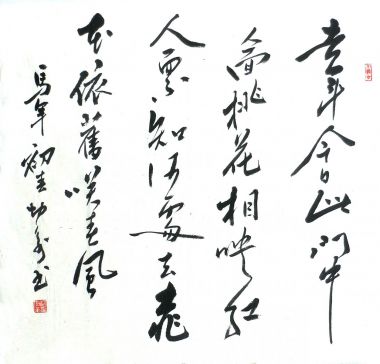 去年今日此門中
人面桃花相映紅
人面不知何處去桃
花依舊咲春風
馬年初春
书